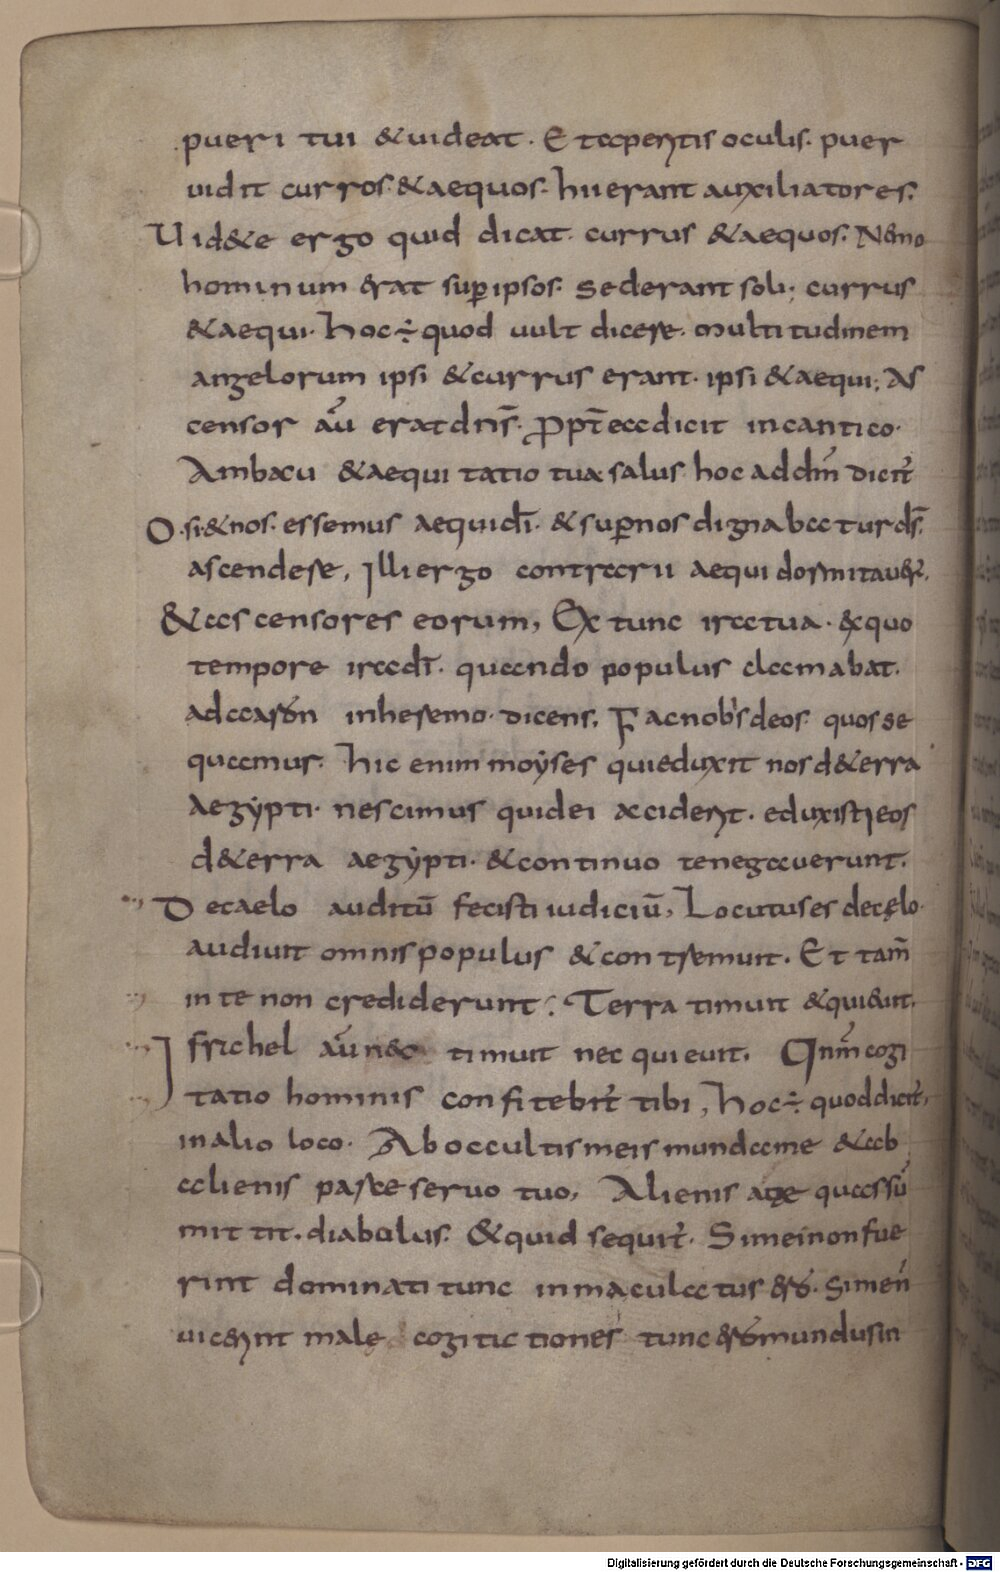 pueri tui & uideat. Et apertis oculis. puer
uidit curros. & aequos. hii erant auxiliatores.
Uid&e ergo quid dicat. currus & aequos. Nemo
hominum erat sup̱ ipsos. sederant soli; currus
& aequi. hoc ÷ quod uult dicere. multitudinem
angelorum ipsi & currus erant. ipsi & aequi; As
censor aū erat dn̄s. Propt̄ ea dicit in cantico.
Ambacu & aequitatio tua salus. hoc ad dm̄ dicit̄
O. si & nos. essemus aequi dī. & sup̱ nos dignabatur ds̄
ascendere, Illi ergo contrarii aequi dormitauer̄,
& ascensores eorum, Ex tunc ira tua. exquo
tempore ira dī. quando populus clamabat.
ad aaron in heremo. dicens, Fac nobis deos. quos se
quamur. hic enim moẏses qui eduxit nos d&erra
aegẏpti. nescimus quid ei acciderit. eduxisti eos
d&erra aegẏpti. & continuo te negauerunt.
De caelo auditū fecisti iudiciū, Locutus es de cęlo.
audiuit omnis populus & contremuit. Et tam̄
in te non crediderunt; Terra timuit & quieuit.
Israhel aū nec timuit nec quieuit. Qnm̄ cogi
tatio hominis confitebit̄ tibi, hoc ÷ quod dicit̄,
in alio loco. Ab occultis meis munda me & ab
alienis parce seruo tuo, Alienis atque quas sū
mittit. diabulus. & quid sequit̄. Si mei non fue
rint dominati tunc inmaculatus ero. Si me n̄
uicerint male cogitationes tunc ero mundus in
Digitalisierung gefördert durch die Deutsche Forschungsgemeinschaft - DFG